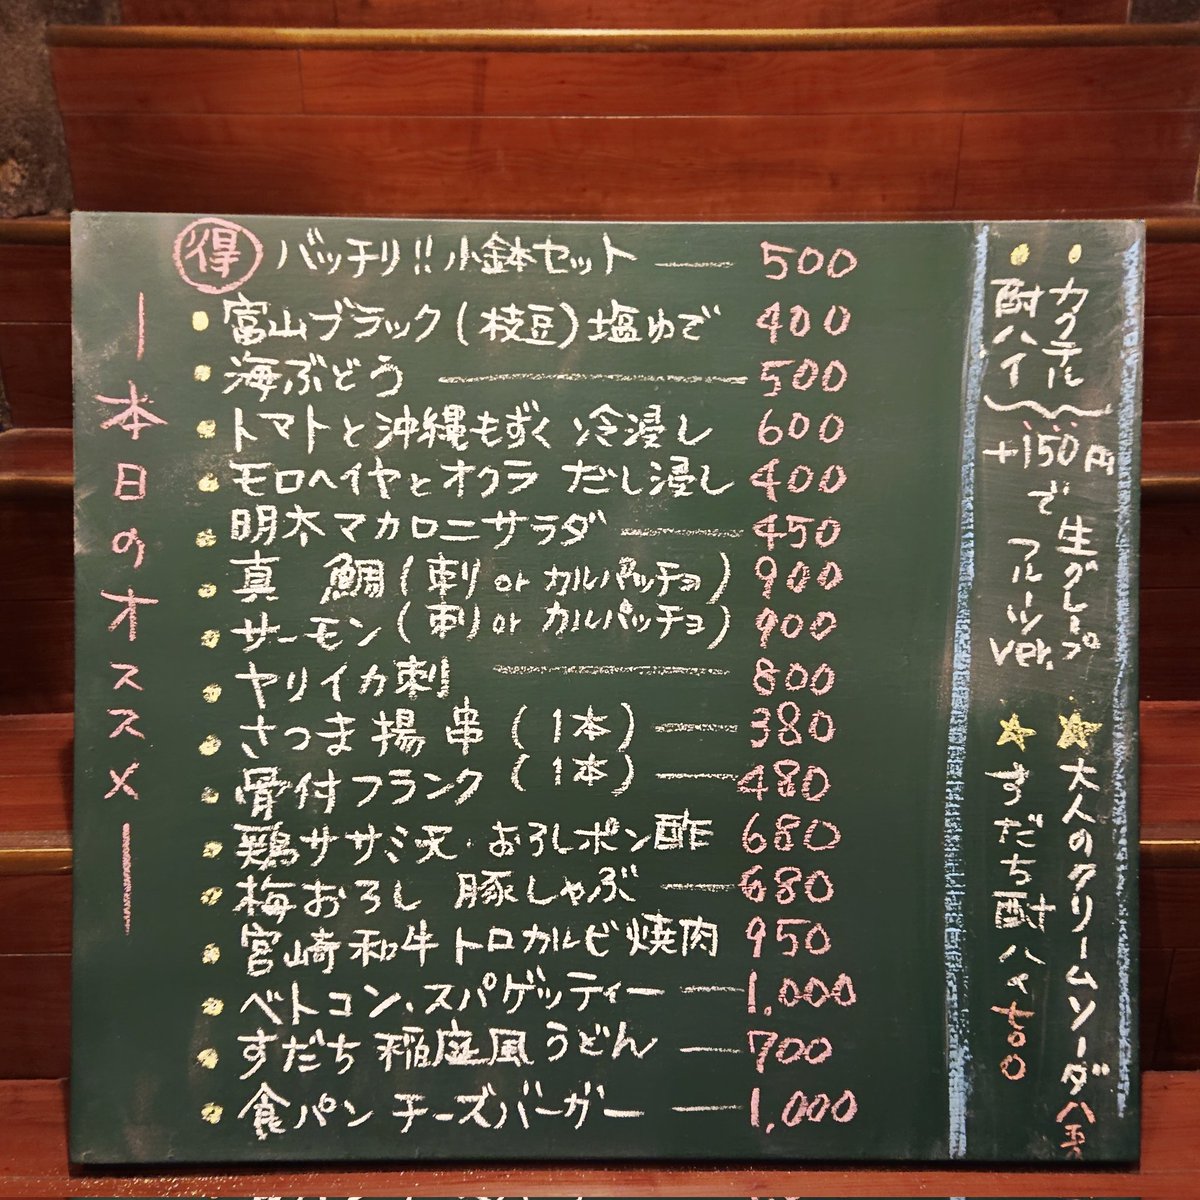 本日のオススメ
得 バッチリ!! 小鉢セット 500
富山ブラック(枝豆)塩ゆで 400
海ぶどう 500
トマトと沖縄もずく 冷浸し 600
モロヘイヤとオクラ だし浸し 400
明太マカロニサラダ 450
真 鯛(刺り or カルパッチョ) 900
サーモン(刺り or カルパッチョ) 900
ヤリイカ刺 800
さつま揚 串(1本) 380
骨付フランク(1本) 480
鶏ササミ天・おろしポン酢 680
梅おろし 豚しゃぶ 680
宮崎和牛トロカルビ焼肉 950
ベトコン・スパゲッティー 1,000
すだち稲庭風うどん 700
食パン チーズバーガー 1,000
カクテル
酎ハイ
+150円
で
生グレープ
フルーツ
ver.
大人のクリームソーダ
すだち酎ハイ